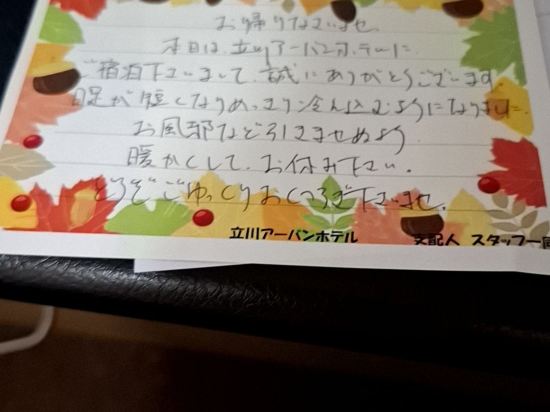 お帰りなさいませ
本日は、立川アーバンホテルに
ご宿泊下さいまして、誠にありがとうございます。
日足が短くなり始め、より冷え込むようになりました。
お風邪など引きませぬよう
暖かくして、お休み下さい。
どうぞごゆっくりおくつろぎ下さいませ。
立川アーバンホテル 支配人 スタッフ一同